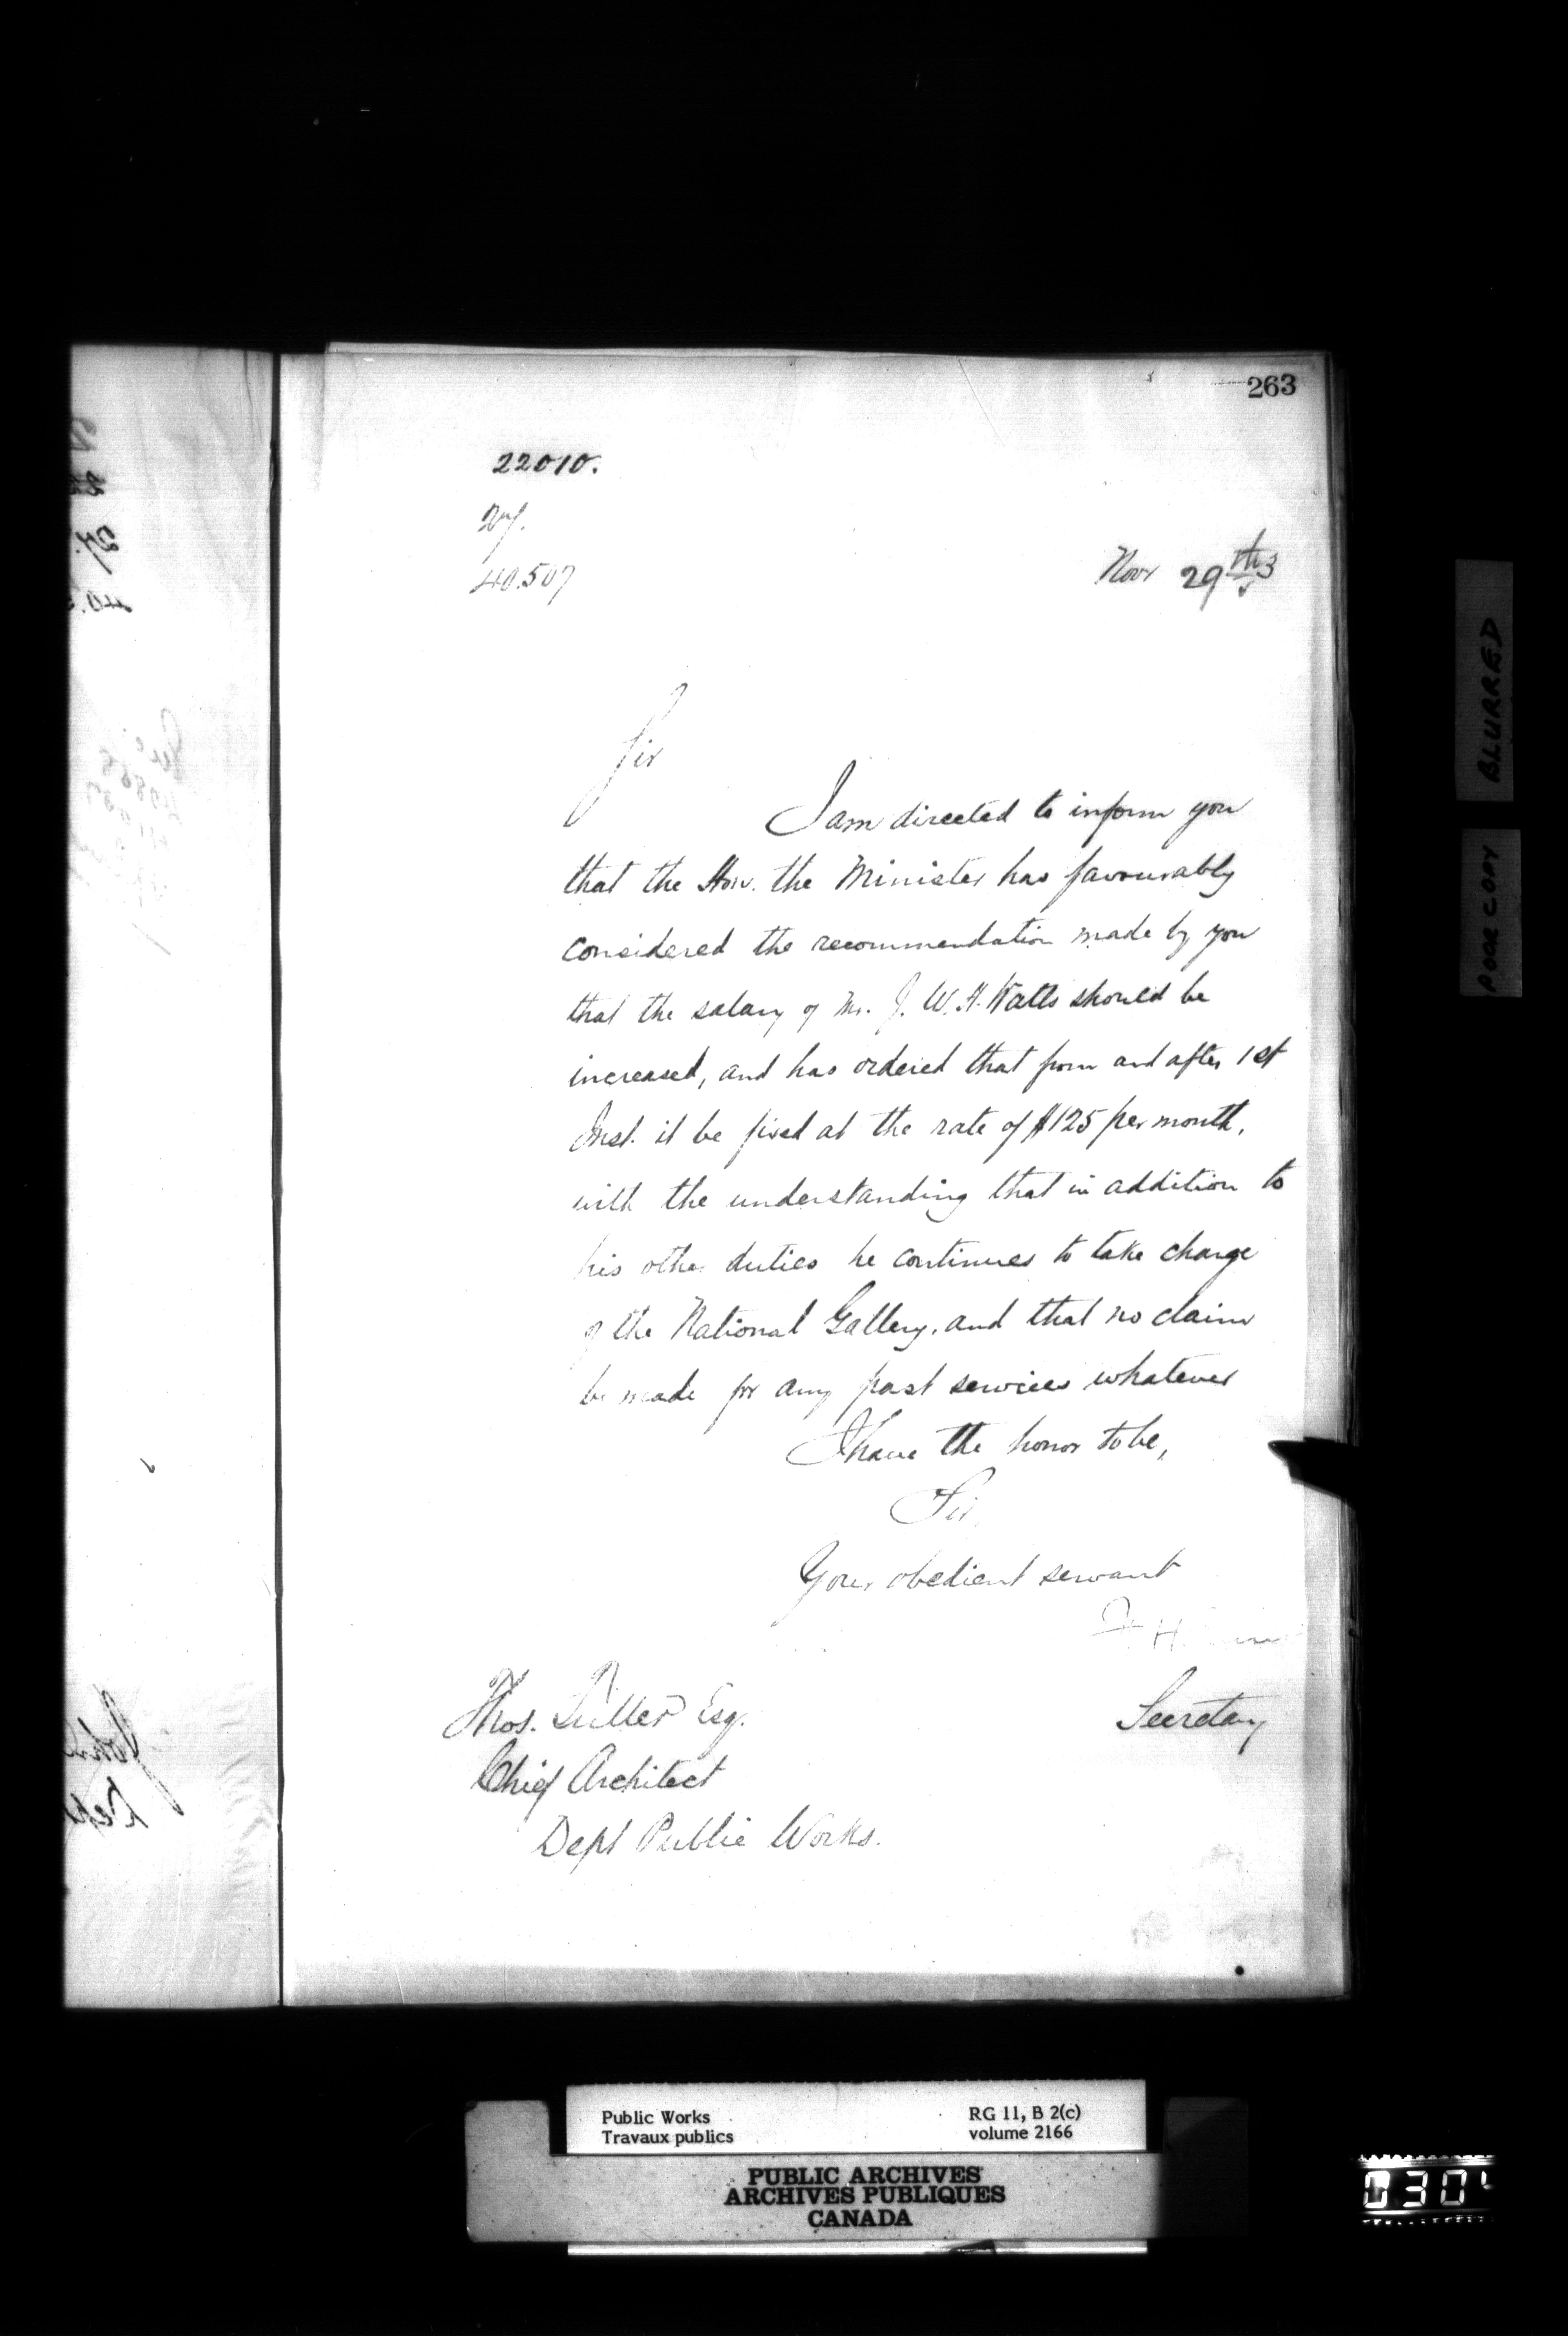 263
22010.
40.507
Novr 29th 3
Sir
I am directed to inform you
that the Hon. the Minister has favourably
considered the recommendation made by you
that the salary of Mr. J. W. H. Watts should be
increased, and has ordered that from and after 1st
Inst. it be fixed at the rate of $125 per month,
with the understanding that in addition to
his other duties he continues to take charge
of the National Gallery, and that no claim
be made for any past services whatever
I have the honor to be,
Sir,
Your obedient servant
Secretary
Thos. Fuller Esq.
Chief Architect
Dept Public Works.
BLURRED
POOR COPY
Public Works
Travaux publics
RG 11, B 2(c)
volume 2166
PUBLIC ARCHIVES
ARCHIVES PUBLIQUES
CANADA